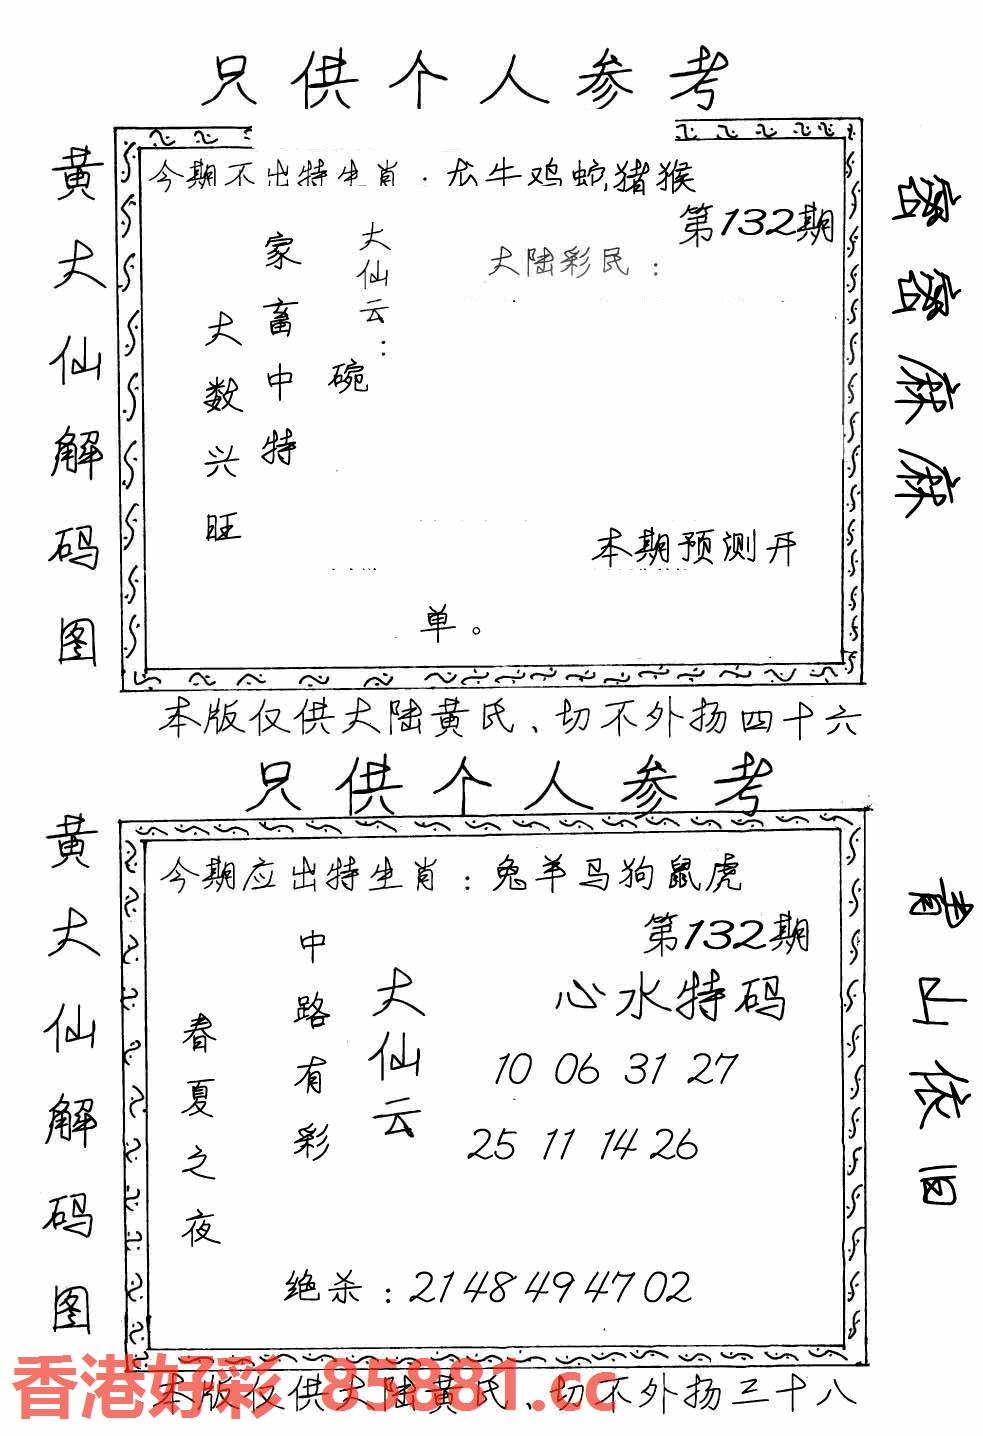 只供个人参考
黄大仙解码图
今期不出特生肖：龙牛鸡蛇猪猴
第132期
大陆彩民：
大仙云：
碗
家畜中特
大数兴旺
本期预测开
单。
密密麻麻
本版仅供大陆黄氏、切不外扬四十六
只供个人参考
黄大仙解码图
今期应出特生肖：兔羊马狗鼠虎
第132期
心水特码
10 06 31 27
25 11 14 26
大仙云
中路有彩
春夏之夜
绝杀：21 48 49 47 02
青山依旧
本版仅供大陆黄氏、切不外扬三十八
香港好彩 85881.cc